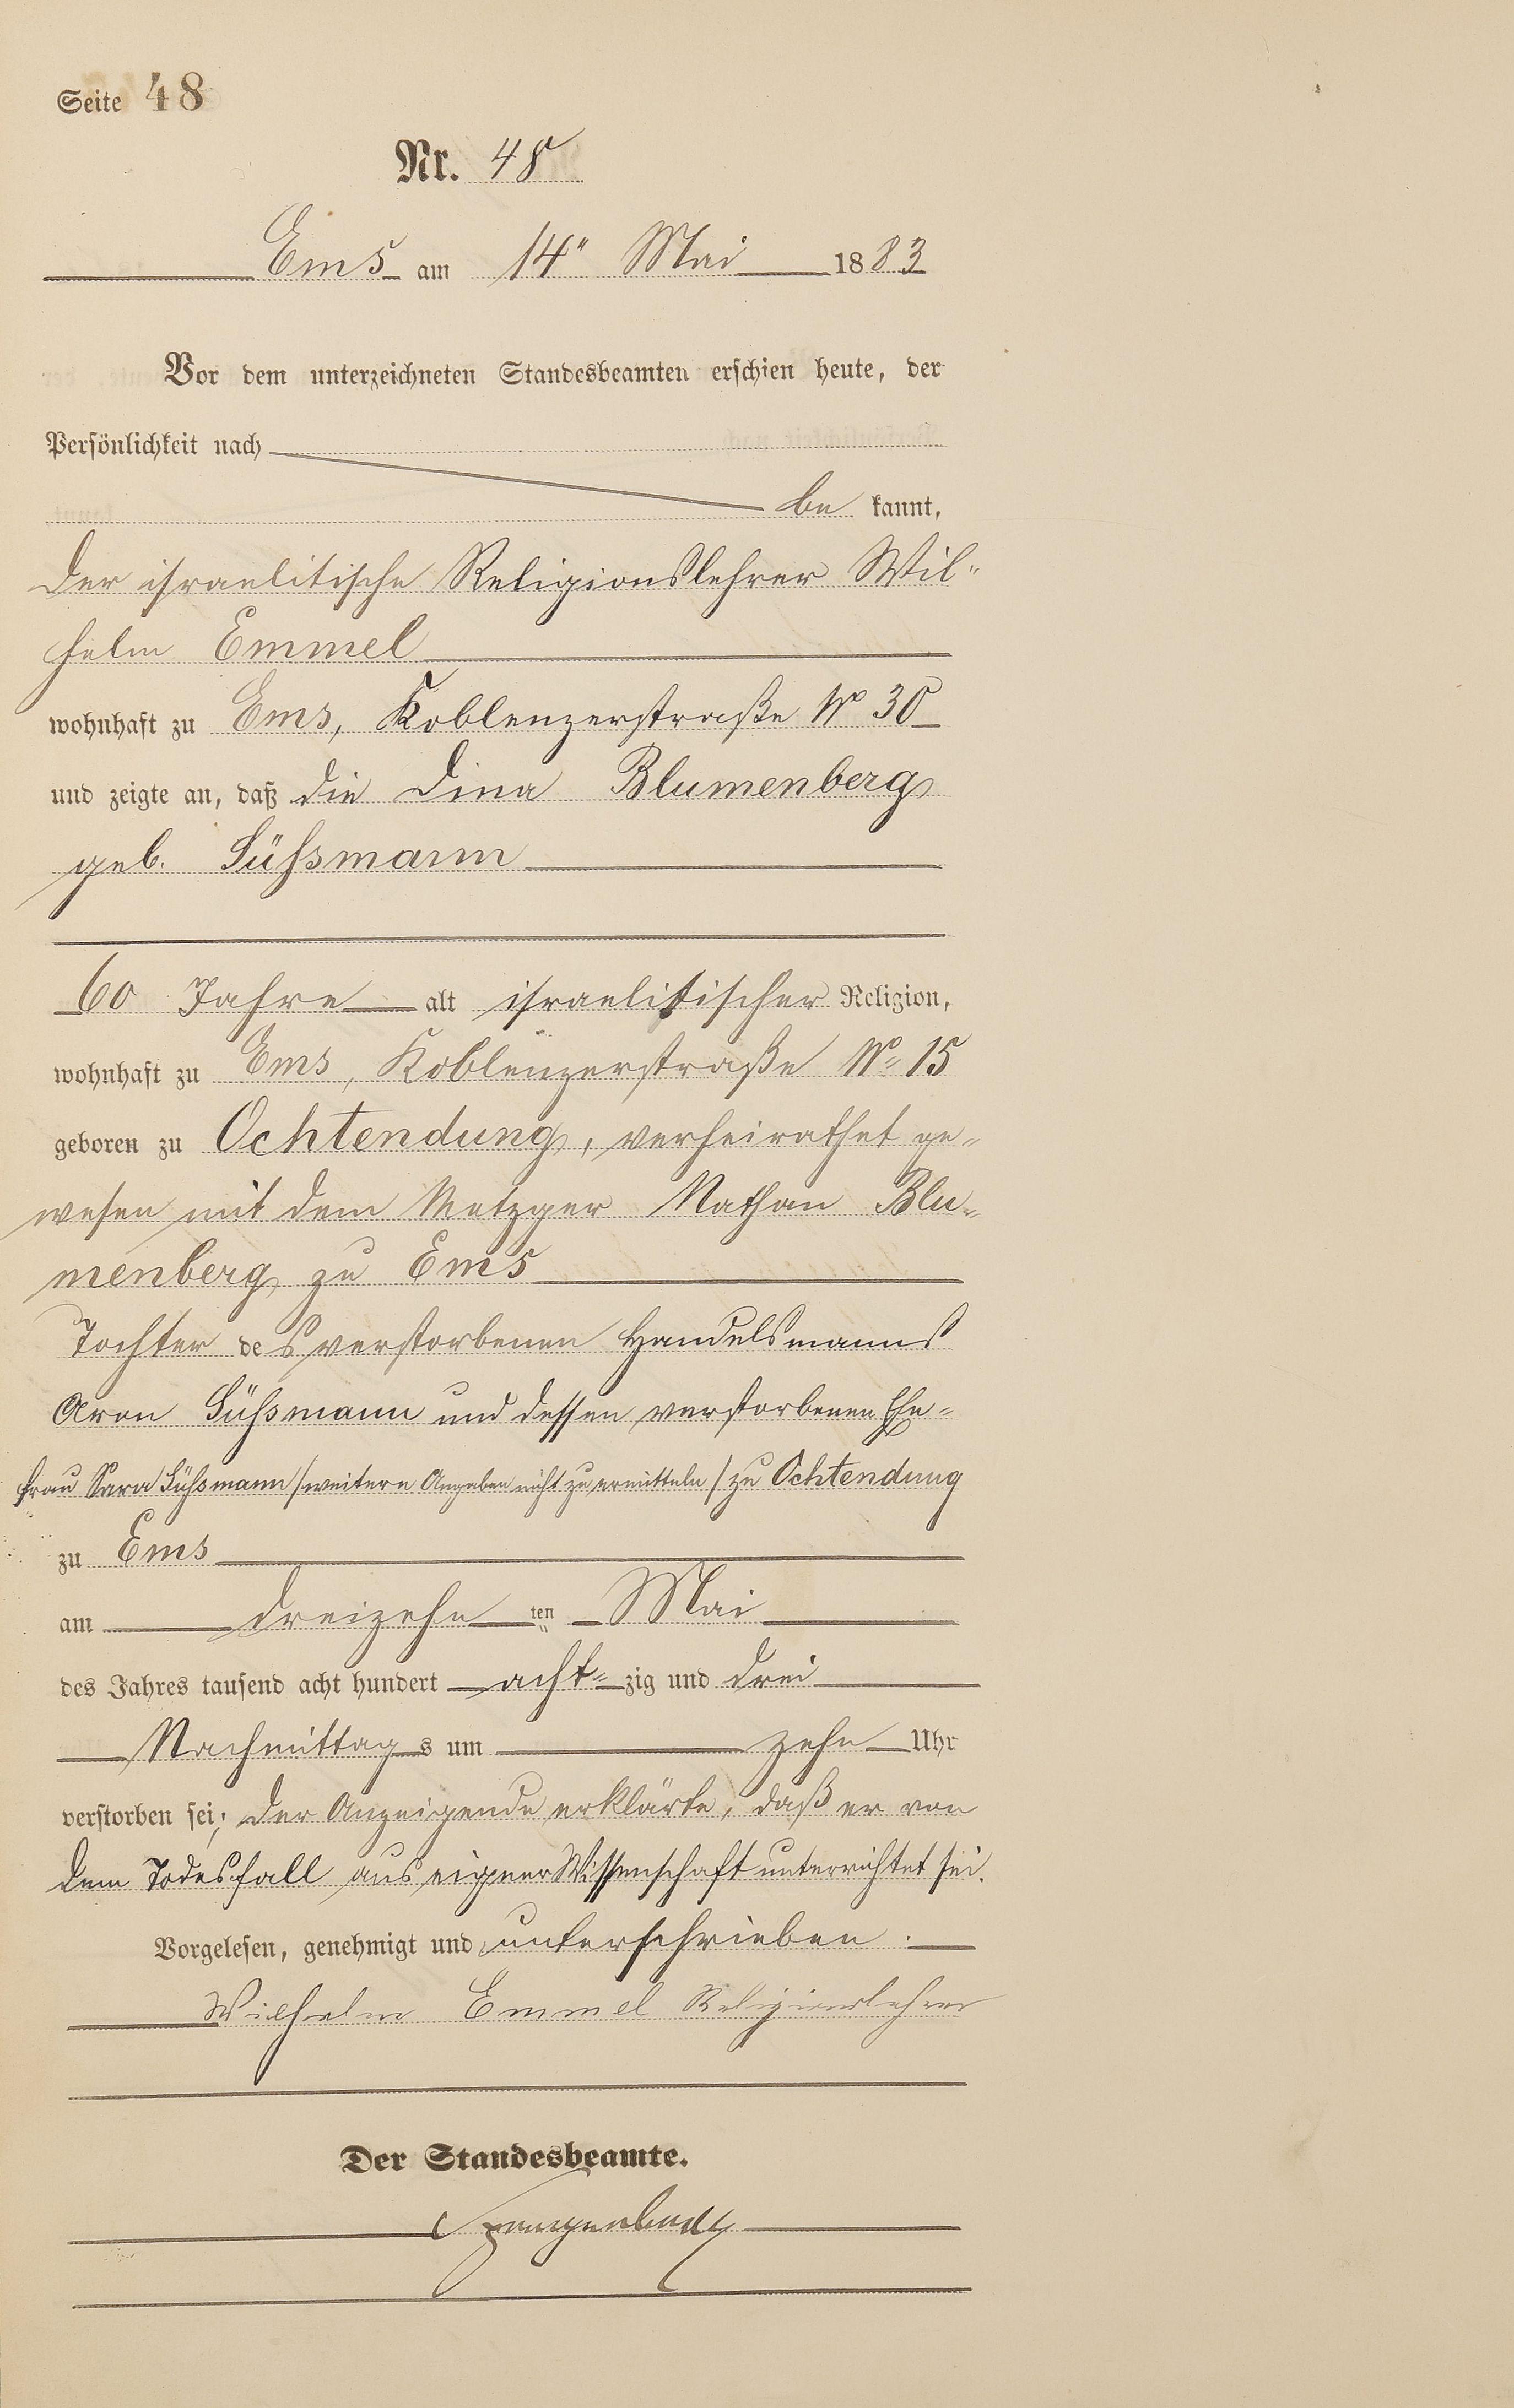 Seite 48
Nr. 48
Ems am 14" Mai 1883
Vor dem unterzeichneten Standesbeamten erschien heute, der
Persönlichkeit nach
be kannt,
der israelitische Religionslehrer Wil-
helm Emmel
wohnhaft zu Ems, Koblenzerstraße No 30
und zeigte an, daß die Dina Blumenberg
geb. Süßsmann
60 Jahre alt israelitischer Religion,
wohnhaft zu Ems, Koblenzerstraße No 15
geboren zu Ochtendung, verheirathet ge-
wesen mit dem Metzger Nathan Blu-
menberg zu Ems
Tochter des verstorbenen Handelsmanns
Aron Süßsmann und dessen verstorbenen Ehe-
frau Sara Süßsmann / weitere Angaben nicht zu ermitteln / zu Ochtendung
zu Ems
am dreizehn ten Mai
des Jahres tausend acht hundert acht- zig und drei
Nachmittags um zehn Uhr
verstorben sei; der Anzeigende erklärte, daß er von
dem Todesfall aus eigner Wissenschaft unterrichtet sei.
Vorgelesen, genehmigt und unterschrieben.
Wilhelm Emmel Religionslehrer
Der Standesbeamte.